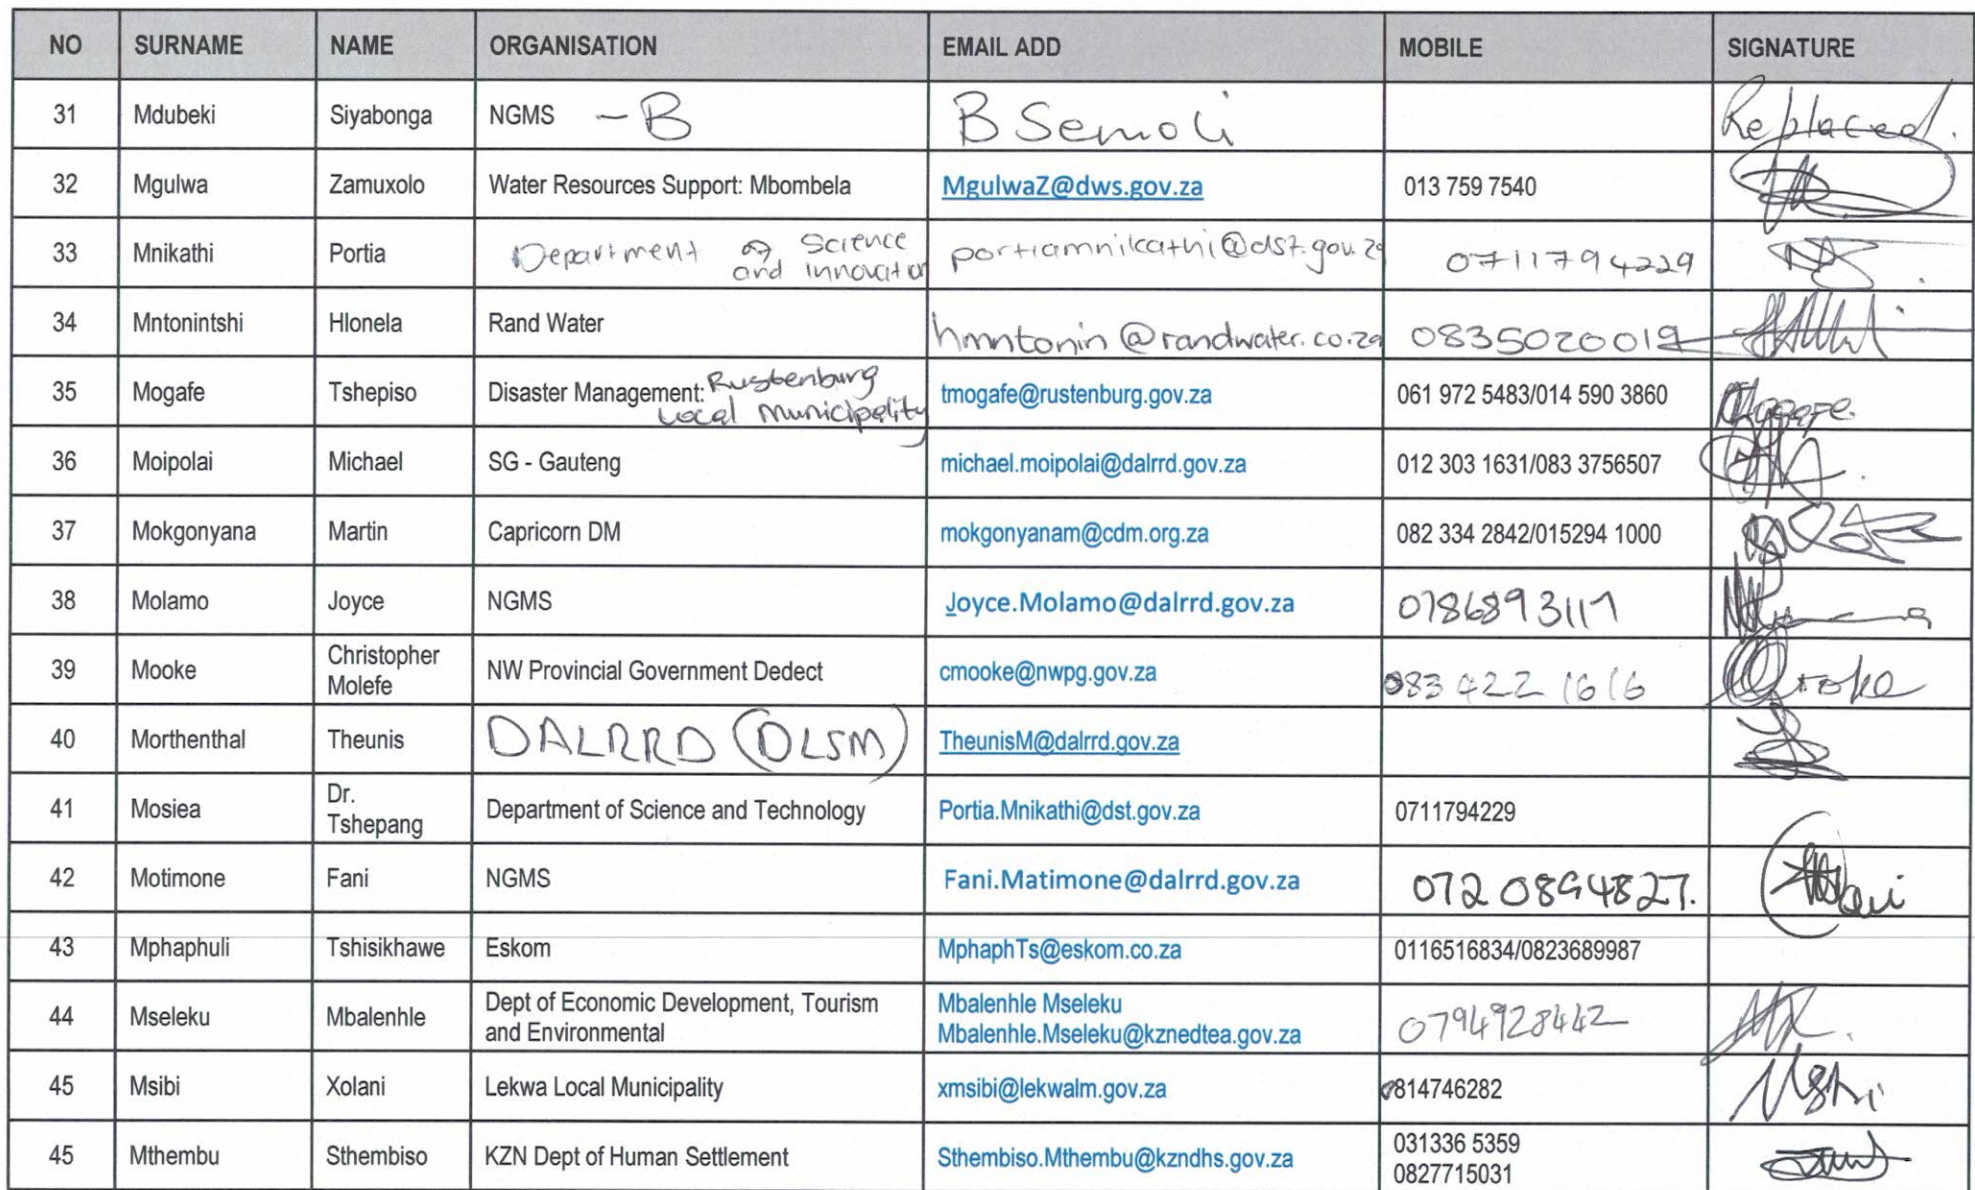 NO SURNAME NAME ORGANISATION EMAIL ADD MOBILE SIGNATURE
31 Mdubeki Siyabonga NGMS - B B Semoli Replaced.
32 Mgulwa Zamuxolo Water Resources Support: Mbombela MgulwaZ@dws.gov.za 013 759 7540
33 Mnikathi Portia Department of Science portiamnikathi@dst.gov.za 0711794229
and innovation
34 Mntonintshi Hlonela Rand Water hmntonin@randwater.co.za 0835020019
35 Mogafe Tshepiso Disaster Management: Rustenburg tmogafe@rustenburg.gov.za 061 972 5483/014 590 3860 Mogafe
Local Municipality
36 Moipolai Michael SG - Gauteng michael.moipolai@dalrrd.gov.za 012 303 1631/083 3756507
37 Mokgonyana Martin Capricorn DM mokgonyanam@cdm.org.za 082 334 2842/015294 1000
38 Molamo Joyce NGMS Joyce.Molamo@dalrrd.gov.za 0786893117
39 Mooke Christopher NW Provincial Government Dedect cmooke@nwpg.gov.za 083 422 1616
Molefe
40 Morthenthal Theunis DALRRD (DLSM) TheunisM@dalrrd.gov.za
41 Mosiea Dr. Department of Science and Technology Portia.Mnikathi@dst.gov.za 0711794229
Tshepang
42 Motimone Fani NGMS Fani.Matimone@dalrrd.gov.za 072 0894827.
43 Mphaphuli Tshisikhawe Eskom MphaphTs@eskom.co.za 0116516834/0823689987
44 Mseleku Mbalenhle Dept of Economic Development, Tourism Mbalenhle Mseleku 0794928442
and Environmental Mbalenhle.Mseleku@kznedtea.gov.za
45 Msibi Xolani Lekwa Local Municipality xmsibi@lekwalm.gov.za 0814746282
45 Mthembu Sthembiso KZN Dept of Human Settlement Sthembiso.Mthembu@kzndhs.gov.za 031336 5359
0827715031